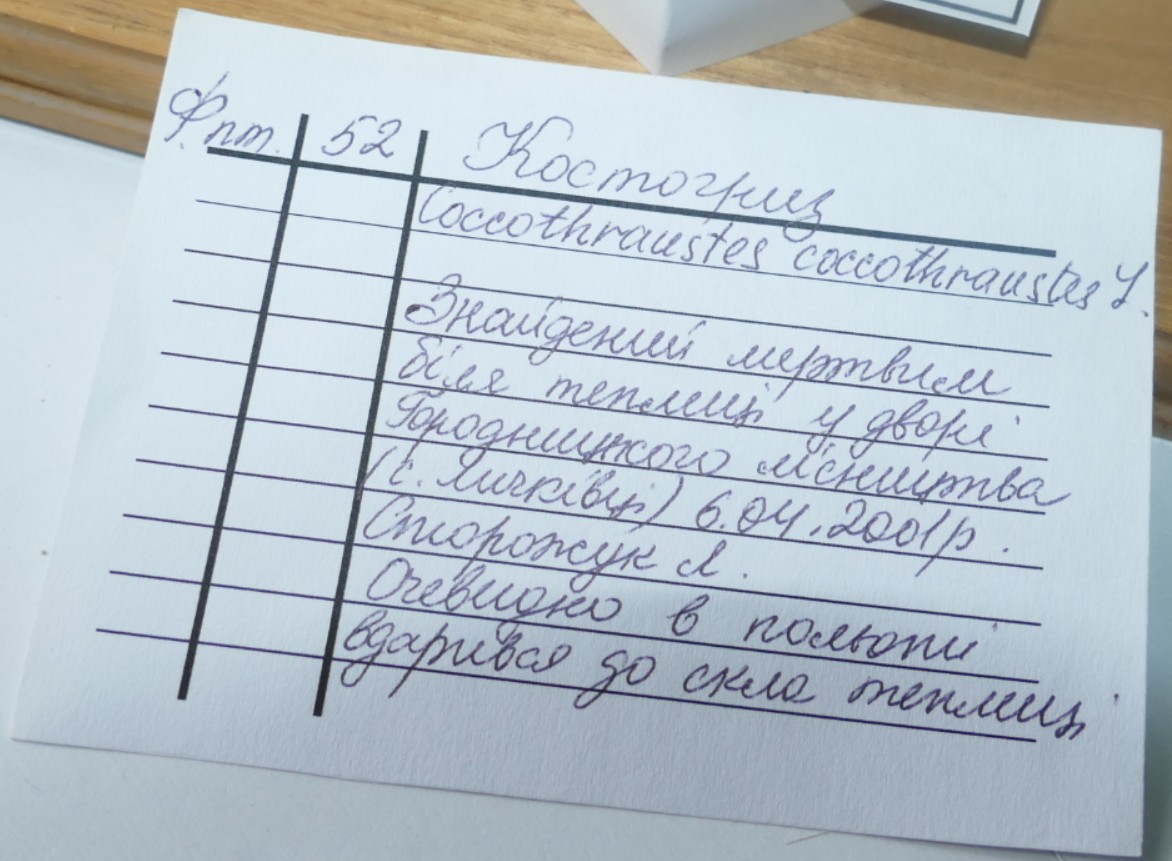 Ф.пт. 52 Костогриз
Coccothraustes coccothraustes L.
Знайдений мертвим
біля теплиці у дворі
Городницького лісництва
(с. Личківці) 6.04.2001р.
Сторожук Л.
Очевидно в польоті
вдарився до скла теплиці